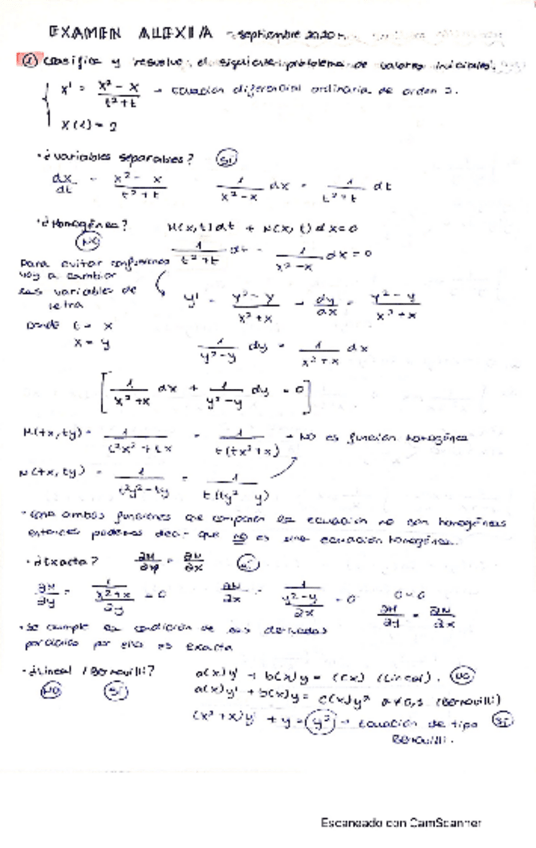 EXAMEN ALEXIA - septiembre 2020
① Clasifica y resuelve el siguiente problema de valores iniciales.
x' = x² - x / t² + t → ecuación diferencial ordinaria de orden 1.
x(1) = 2
• ¿Variables separables? (SI)
dx/dt = x² - x / t² + t    1/x² - x dx = 1/t² + t dt
• ¿Homogénea? M(x,t)dt + N(x,t)dx = 0
(NO) 1/t² + t dt - 1/x² - x dx = 0
Para evitar confusiones
voy a cambiar
las variables de
letra
y' = y² - y / x² + x → dy/dx = y² - y / x² + x
Donde t = x
x = y
1/y² - y dy = 1/x² + x dx
[1/x² + x dx + 1/y² - y dy = 0]
M(tx, ty) = 1/t²x² + tx = 1/t(tx² + x) → NO es función homogénea
N(tx, ty) = 1/t²y² - ty = 1/t(ty² - y)
• Como ambas funciones que componen la ecuación no son homogéneas
entonces podemos decir que no es una ecuación homogénea.
• ¿Exacta? ∂M/∂y = ∂N/∂x
∂M/∂y = 1/x² + x / ∂y = 0    ∂N/∂x = 1/y² - y / ∂x = 0    0 = 0
∂M/∂y = ∂N/∂x
• Se cumple la condición de las derivadas
parciales por ello es exacta
• ¿Lineal / Bernouilli? a(x)y' + b(x)y = c(x) (Lineal). (NO)
(NO) (SI) a(x)y' + b(x)y = c(x)yⁿ n≠0,1 (Bernouilli)
(x² + x)y' + y = (y²) → Ecuación de tipo (SI)
Bernouilli.
Escaneado con CamScanner